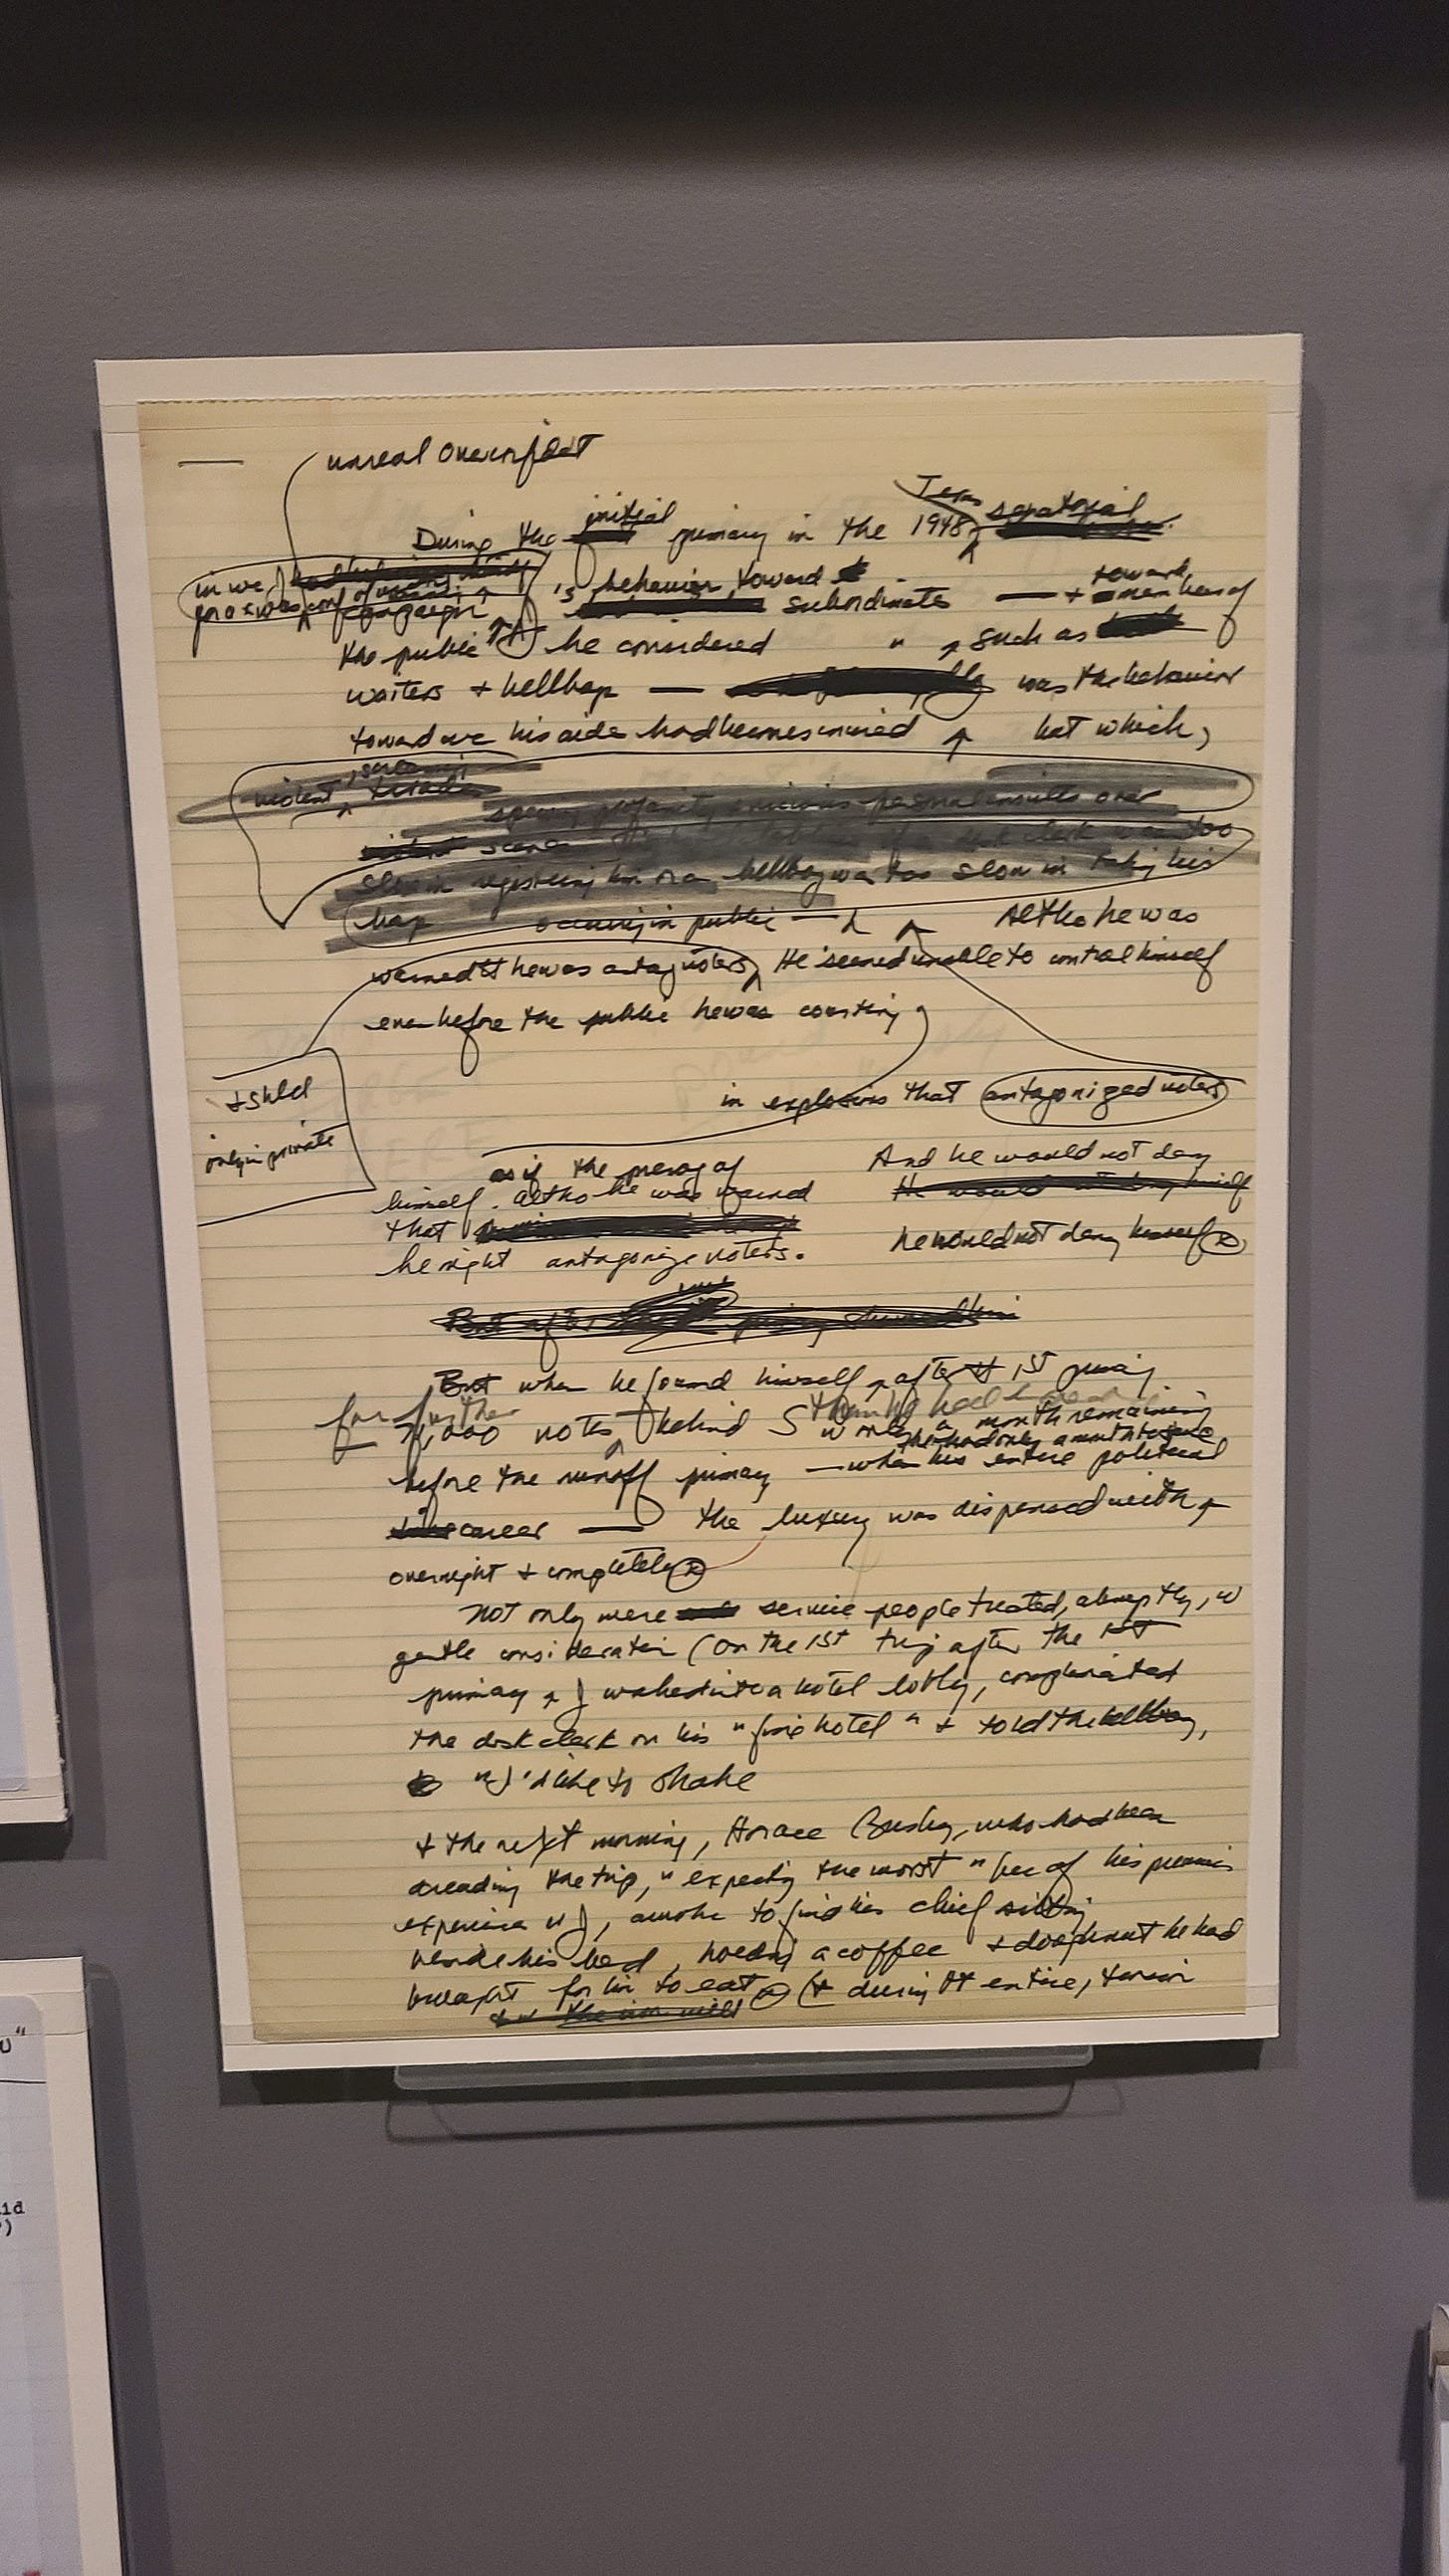 unreal overconfident
During the initial primary in the 1948 Texas senatorial
in wc J
pro x was conf of victory
campaign
's behavior toward subordinates — + toward members of
the public tt he considered " such as
waiters + bellboys — was the behavior
toward wc his aides had become inured but which,
violent, screaming tirades
spewing profanity vicious personal insults over
scene desk clerk was too
slow in registering him or a bellboy was too slow in taking his
bags occurring in public — Altho he was
warned tt he was antag voters, He seemed unable to control himself
even before the public he was courting
+ shld
only in private
in explosions that antagonized voters
as if the prerog of
And he would not deny
himself. Altho he was warned
He would not deny himself
that
he would not deny himself
he might antagonize voters.
But after primary showed him
But when he found himself, after tt 1st primary
far further
than he had
71,000 votes behind S w only a month remaining
he had only a month to
before the runoff primary — when his entire political
career — the luxury was dispensed with
overnight + completely
Not only were service people treated, abruptly, w
gentle consideration (on the 1st trip after the 1st
primary J walked into a hotel lobby, complimented
the desk clerk on his "fine hotel" + told the bellboy,
"I'd like to shake
+ the next morning, Horace Busby, who had been
dreading the trip, "expecting the worst" bec of his previous
experience w J, awoke to find his chief sitting
beside his bed, holding a coffee + doughnut he had
brought for him to eat (+ during tt entire, tension